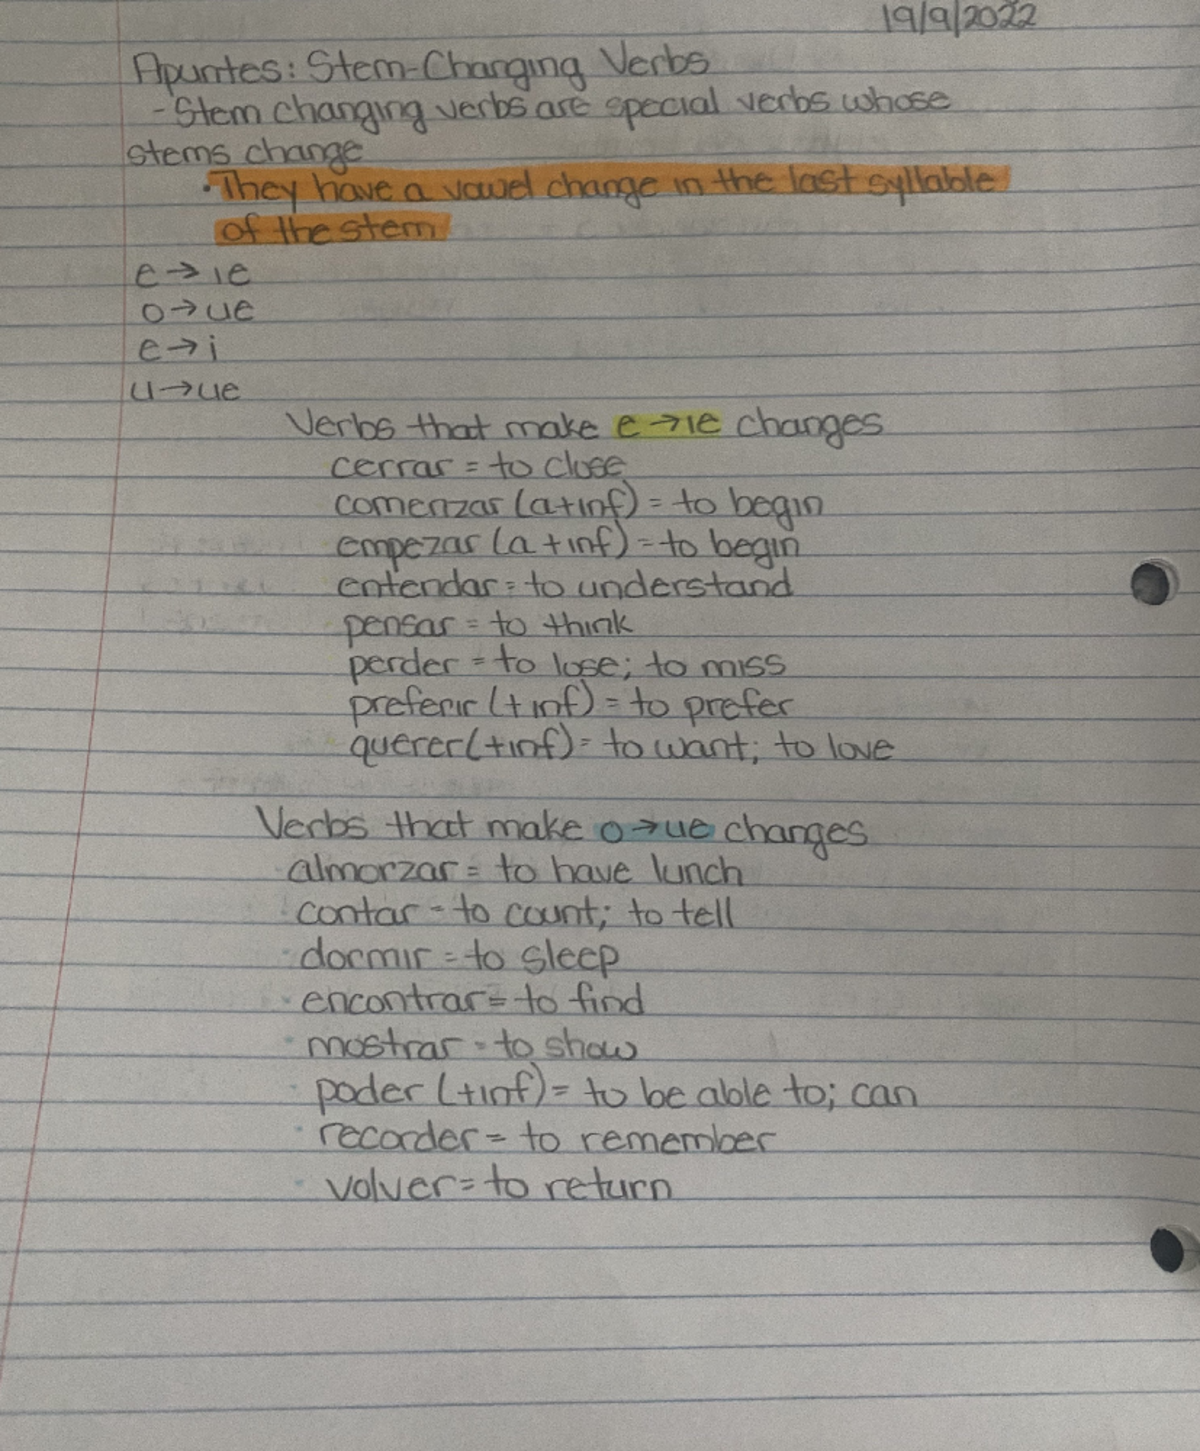 19/9/2022
Apuntes: Stem-Changing Verbs
-Stem changing verbs are special verbs whose
stems change
•They have a vowel change in the last syllable
of the stem
e→ie
o→ue
e→i
u→ue
Verbs that make e→ie changes
cerrar = to close
comenzar (a+inf) = to begin
empezar (a+inf) = to begin
entendar = to understand
pensar = to think
perder = to lose; to miss
preferir (+inf) = to prefer
querer (+inf) = to want; to love
Verbs that make o→ue changes
almorzar = to have lunch
contar = to count; to tell
dormir = to sleep
encontrar = to find
mostrar = to show
poder (+inf) = to be able to; can
recorder = to remember
volver = to return